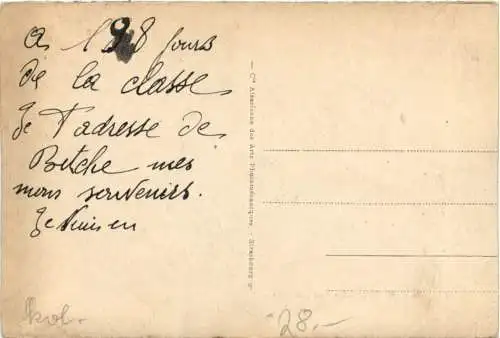 a 198 jours
de la classe
Je t'adresse de
Bitche mes
mons souvenirs.
Cie Alsacienne des Arts Photomécaniques - Strasbourg
28.-